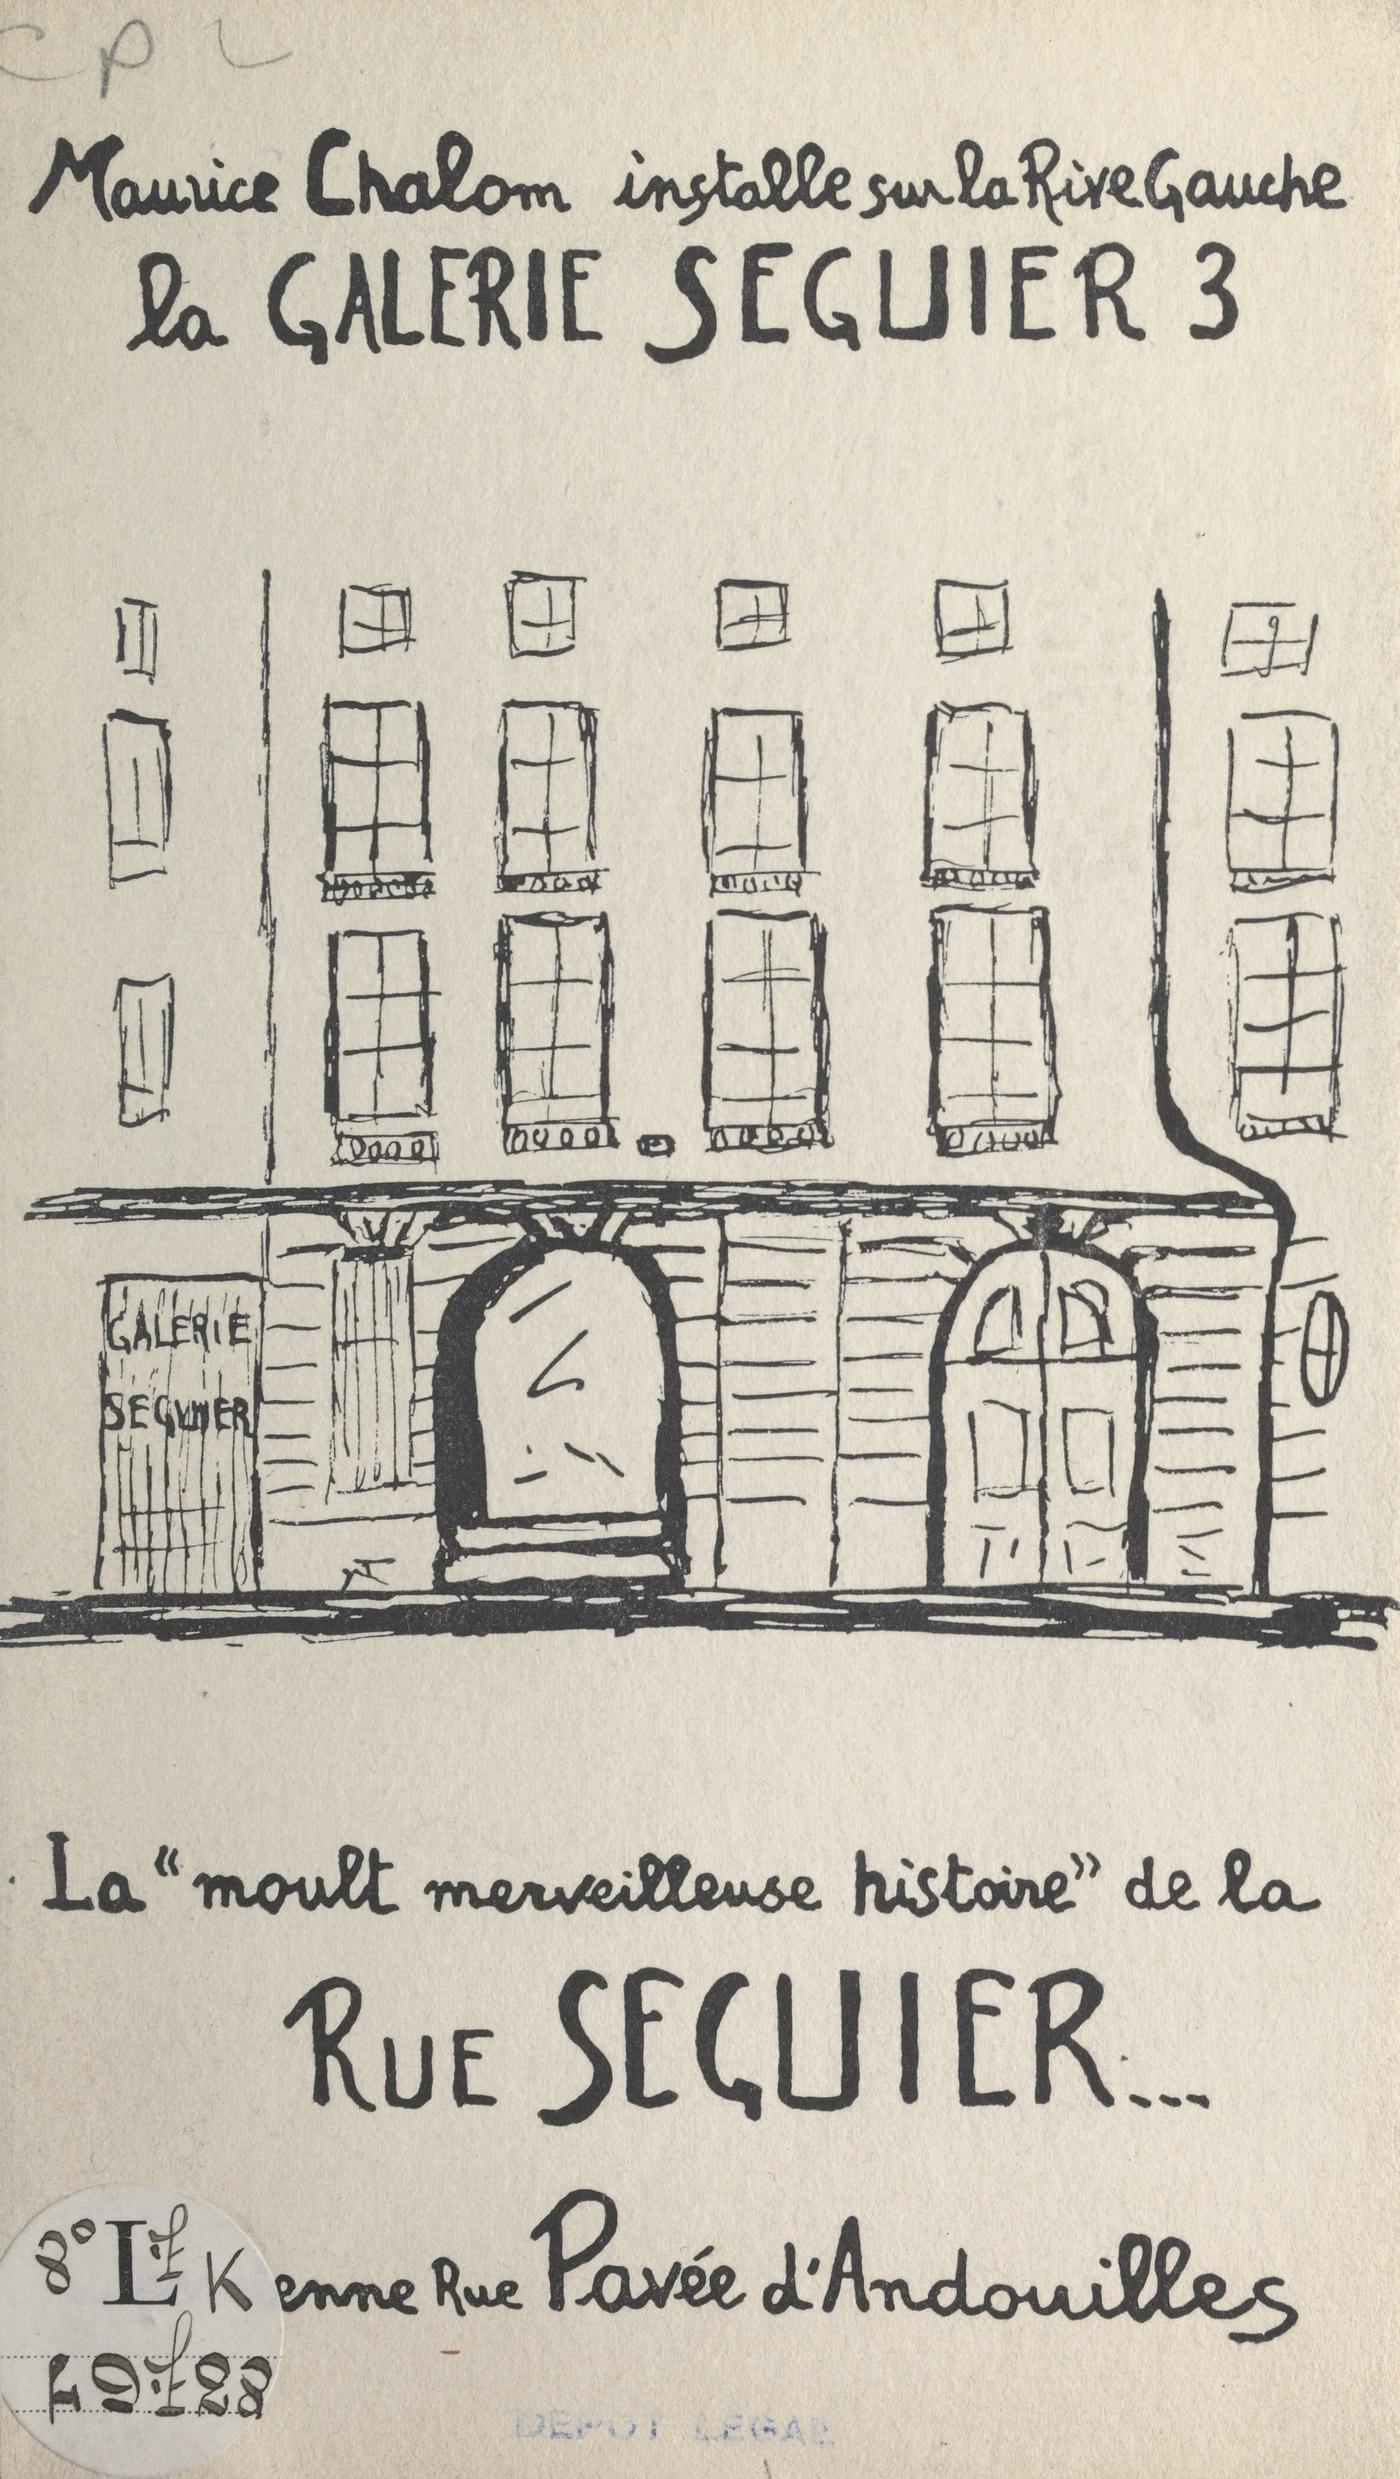 CPL
Maurice Chalom installe sur la Rive Gauche
la GALERIE SEGUIER 3
GALERIE
SEGUIER
La “moult merveilleuse histoire” de la
RUE SEGUIER...
enne Rue Pavée d'Andouilles
8° L K
DEPOT LEGAL